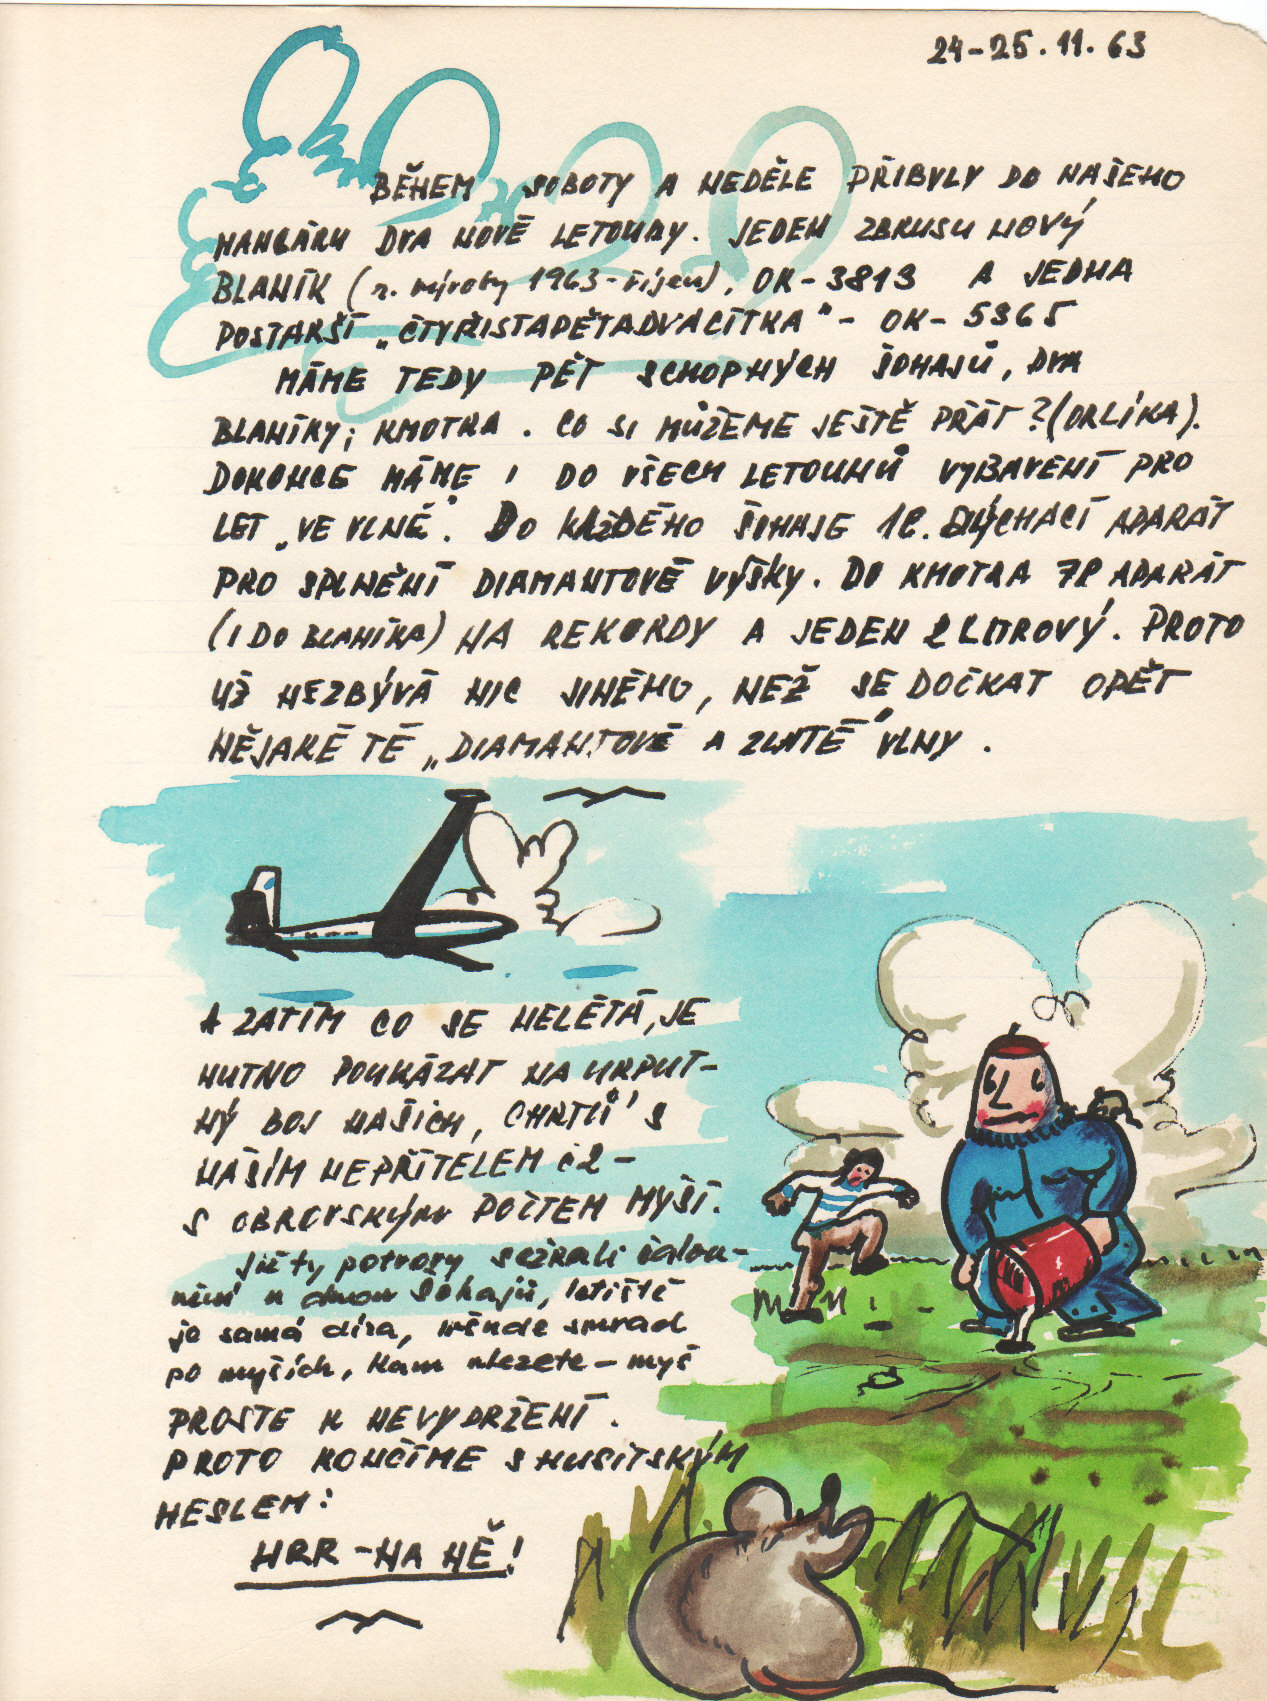 24-25.11.63
BĚHEM SOBOTY A NEDĚLE PŘIBYLY DO NAŠEHO
HANGÁRU DVA NOVÉ LETOUNY. JEDEN ZBRUSU NOVÝ
BLANÍK (r. výroby 1963-říjen), OK-3813 A JEDNA
POSTARŠÍ „ČTYŘISTAPĚTADVACÍTKA" - OK-5365
MÁME TEDY PĚT SCHOPNÝCH ŠOHAJŮ, DVA
BLANÍKY; KMOTRA. CO SI MŮŽEME JEŠTĚ PŘÁT? (ORLÍKA).
DOKONCE MÁME I DO VŠECH LETOUNŮ VYBAVENÍ PRO
LET „VE VLNĚ". DO KAŽDÉHO ŠOHAJE 1l. DÝCHACÍ APARÁT
PRO SPLNĚNÍ DIAMANTOVÉ VÝŠKY. DO KMOTRA 7l APARÁT
(I DO BLANÍKA) NA REKORDY A JEDEN 2 LITROVÝ. PROTO
UŽ NEZBÝVÁ NIC JINÉHO, NEŽ SE DOČKAT OPĚT
NĚJAKÉ TÉ „DIAMANTOVÉ A ZLATÉ" VLNY.
A ZATÍM CO SE NELÉTÁ, JE
NUTNO POUKÁZAT NA URPUT-
NÝ BOJ NAŠICH „CHRTŮ" S
NAŠÍM NEPŘÍTELEM č2-
S OBROVSKÝM POČTEM MYŠÍ.
Již ty potvory sežrali čalou-
nění u dvou Šohajů, letiště
je samá díra, všude smrad
po myších, kam vlezete - myš
PROSTE K NEVYDRŽENÍ.
PROTO KONČÍME S HUSITSKÝM
HESLEM:
HRR - NA NĚ!